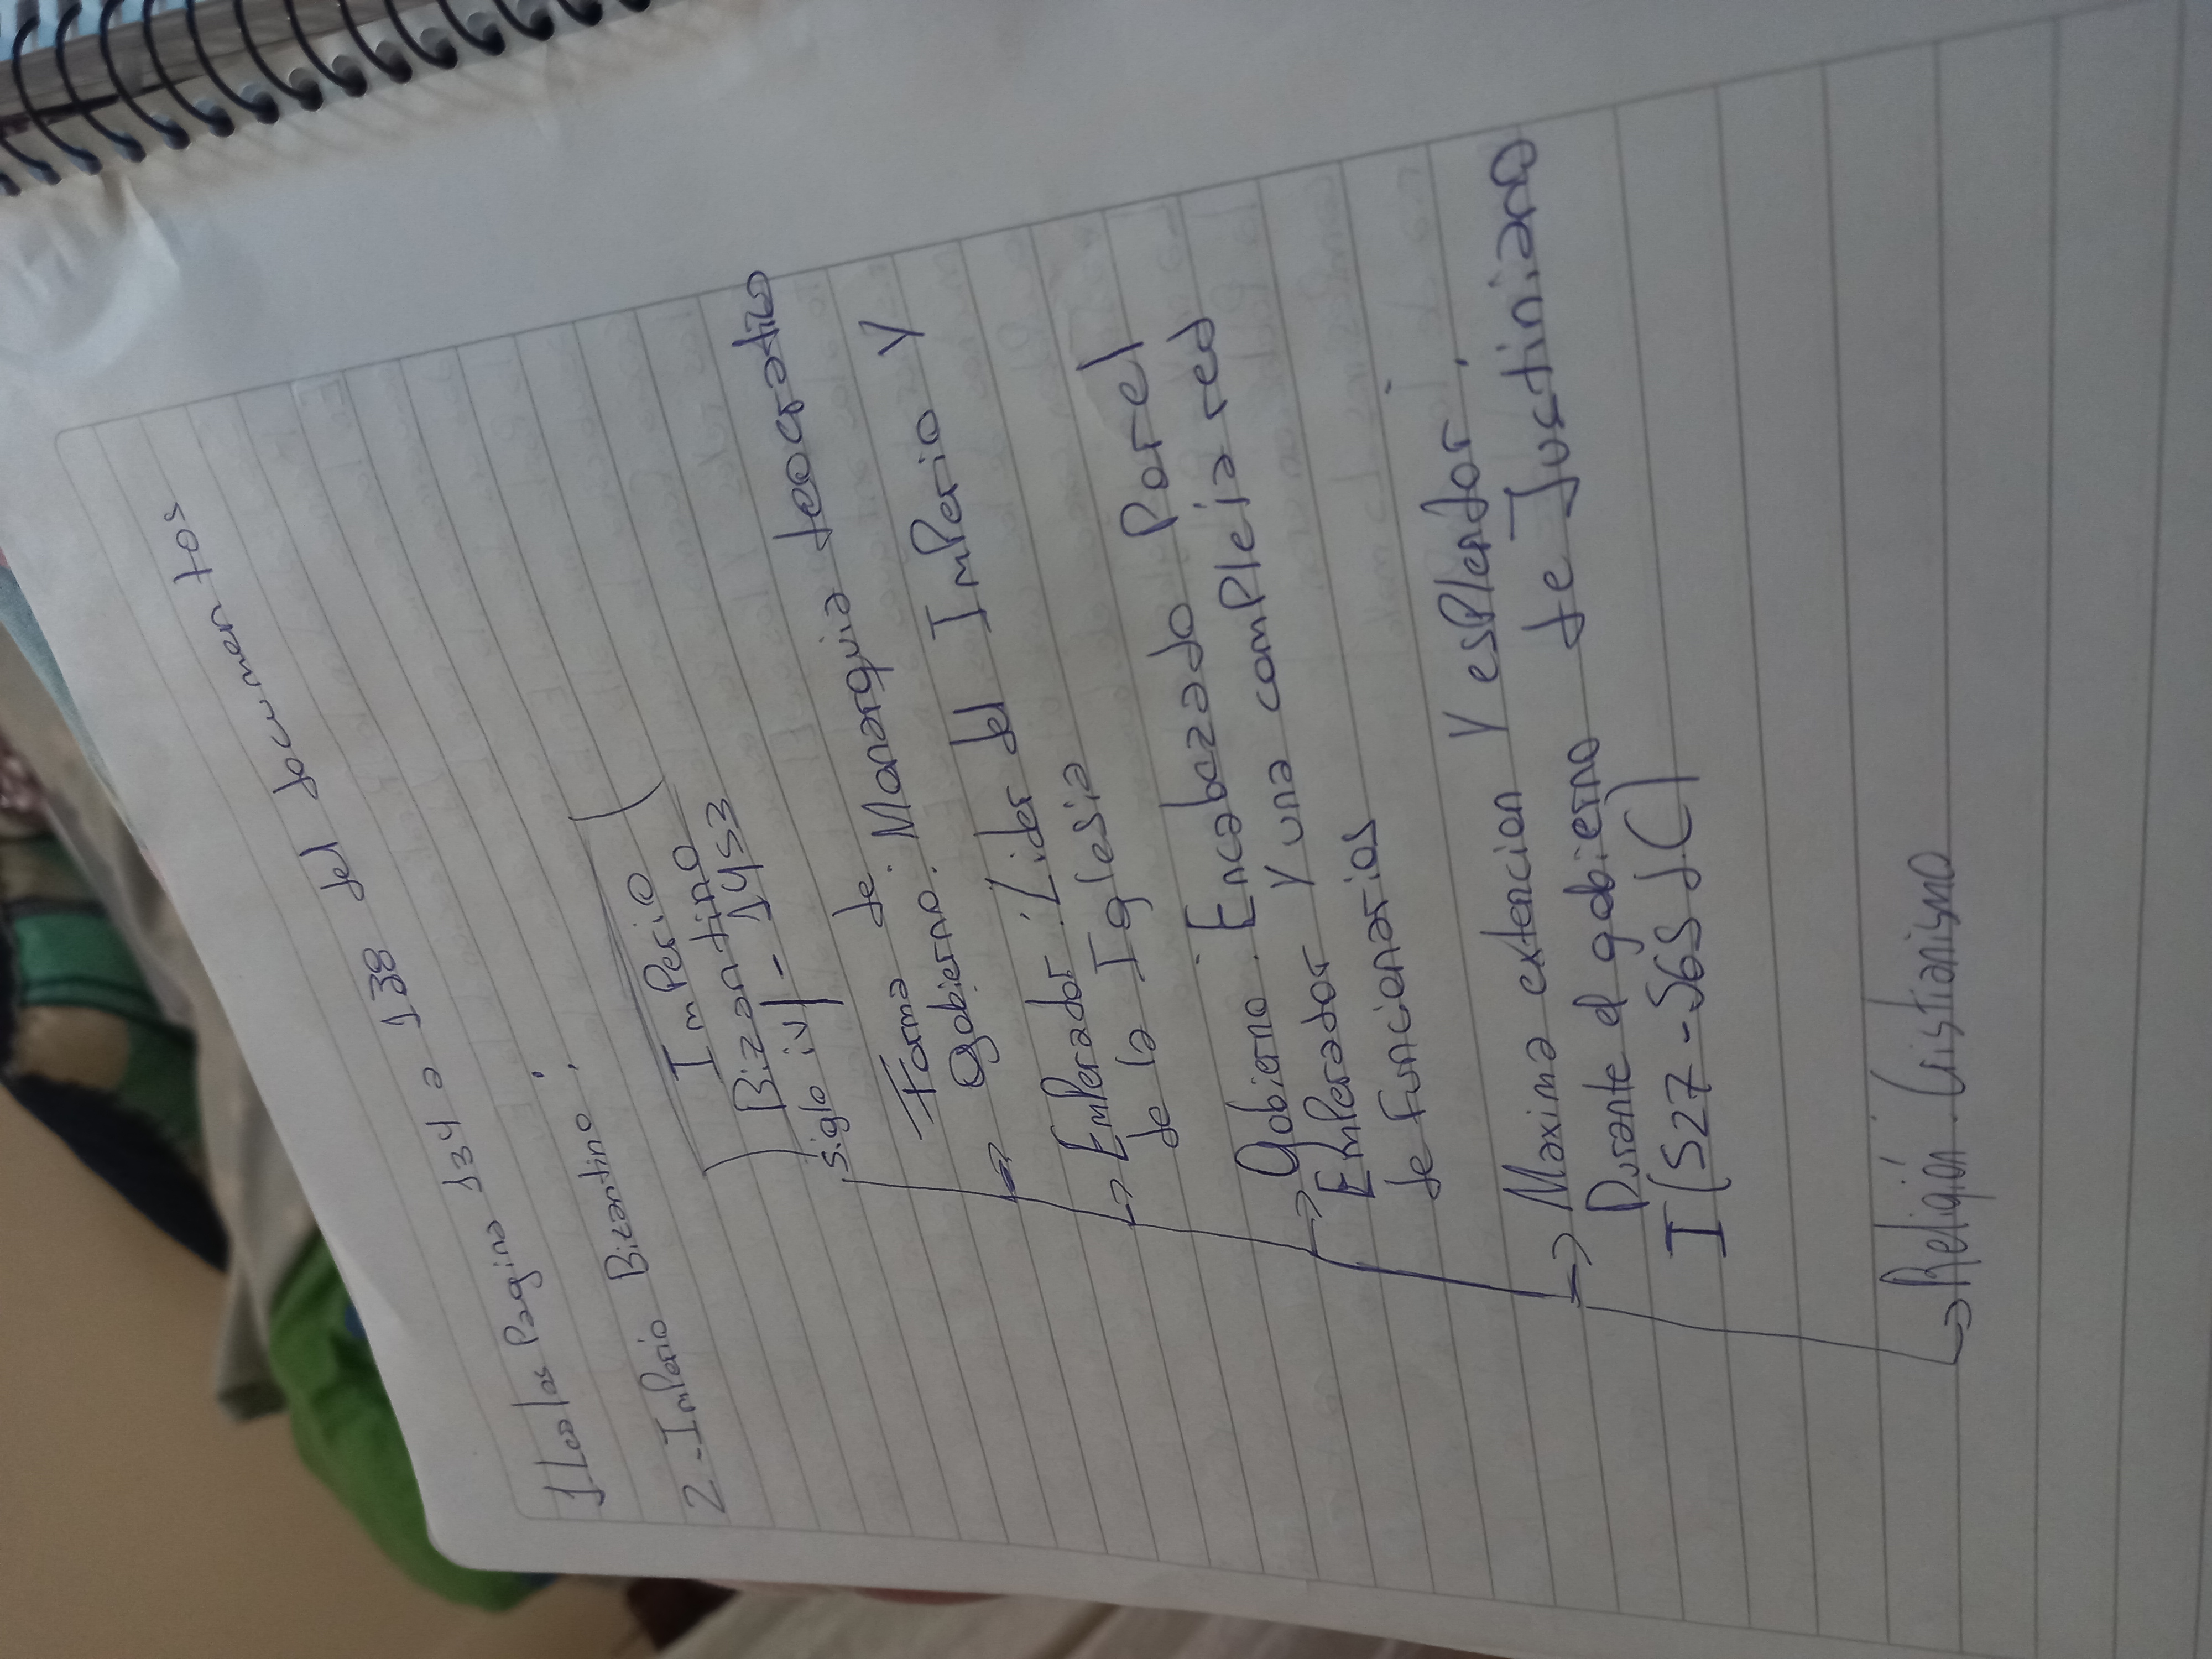 1 Leer las Pagina 134 a 138 del documentos
2.- Imperio Bizantino:
Imperio
Bizantino
siglo iv - 1453
Forma de
gobierno: Monarquia teocratico
Emperador: Lider del Imperio y
de la Iglesia
Gobierno: Encabezado Por el
Emperador y una compleja red
de funcionarios
Maxima extencion y esplendor:
Durante el gobierno de Justiniano
I (527-565 d.C)
Religion: Cristianismo